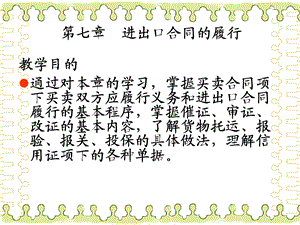 第七章　进出口合同的履行
教学目的
通过对本章的学习，掌握买卖合同项
下买卖双方应履行义务和进出口合同
履行的基本程序，掌握催证、审证、
改证的基本内容，了解货物托运、报
验、报关、投保的具体做法，理解信
用证项下的各种单据。